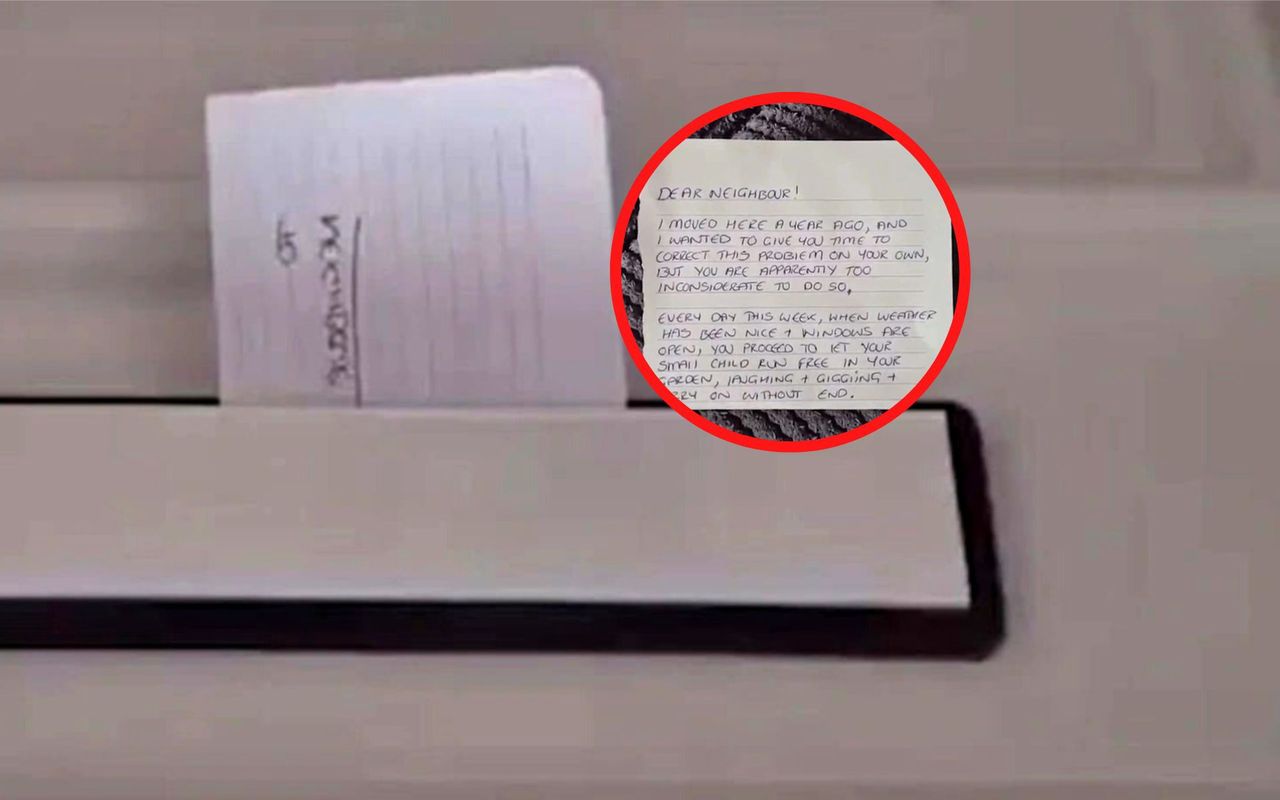 DEAR NEIGHBOUR!
I MOVED HERE A YEAR AGO, AND
I WANTED TO GIVE YOU TIME TO
CORRECT THIS PROBLEM ON YOUR OWN,
BUT YOU ARE APPARENTLY TOO
INCONSIDERATE TO DO SO,
EVERY DAY THIS WEEK, WHEN WEATHER
HAS BEEN NICE + WINDOWS ARE
OPEN, YOU PROCEED TO LET YOUR
SMALL CHILD RUN FREE IN YOUR
GARDEN, LAUGHING + GIGGLING +
RRY ON WITHOUT END.